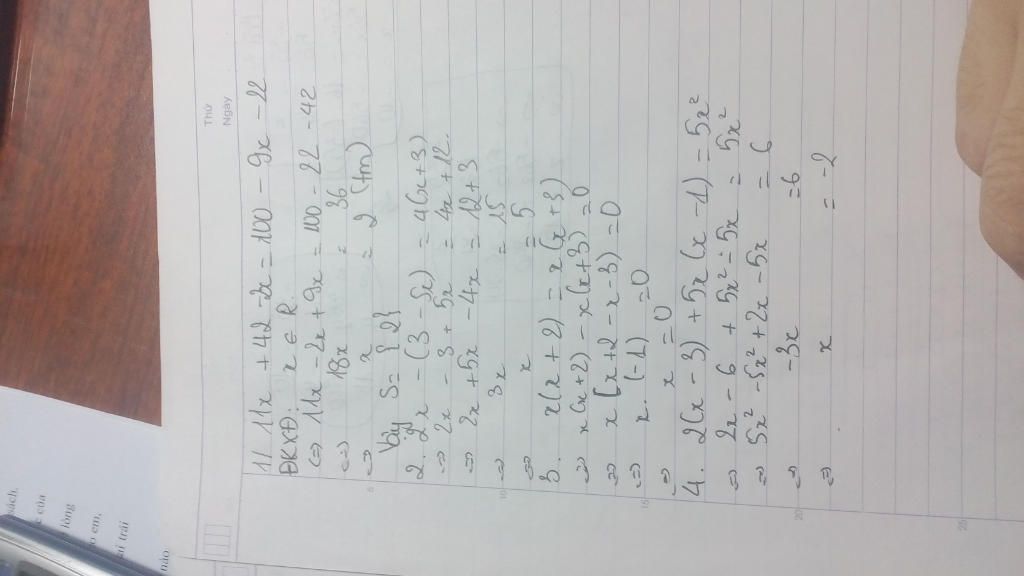 Thứ
Ngày
1) 11x + 42 - 2x = 100 - 9x - 22
ĐKXĐ: x ∈ R.
⇔ 11x - 2x + 9x = 100 - 22 - 42
⇔ 18x = 36
⇔ x = 2 (tm)
Vậy S = {2}
2. 2x - (3 - 5x) = 4(x + 3)
⇔ 2x - 3 + 5x = 4x + 12.
⇔ 2x + 5x - 4x = 12 + 3
⇔ 3x = 15
⇔ x = 5
3. x(x + 2) = x(x + 3)
⇔ x(x + 2) - x(x + 3) = 0
⇔ x[x + 2 - x - 3) = 0
⇔ x. (-1) = 0
⇔ x = 0
4. 2(x - 3) + 5x(x - 1) = 5x²
⇔ 2x - 6 + 5x² - 5x = 5x²
⇔ 5x² - 5x² + 2x - 5x = 6
⇔ -3x = 6
⇔ x = -2
5
10
15
20
25
sách.
của
lòng
em,
trái
não